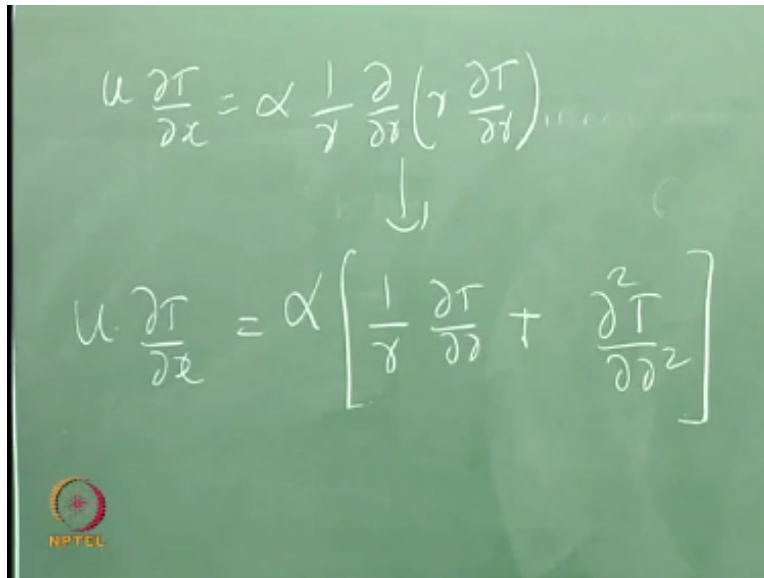 u ∂T/∂x = α 1/r ∂/∂r (r ∂T/∂r) ......
↓
u. ∂T/∂x = α [ 1/r ∂T/∂r + ∂²T/∂r² ]
NPTEL